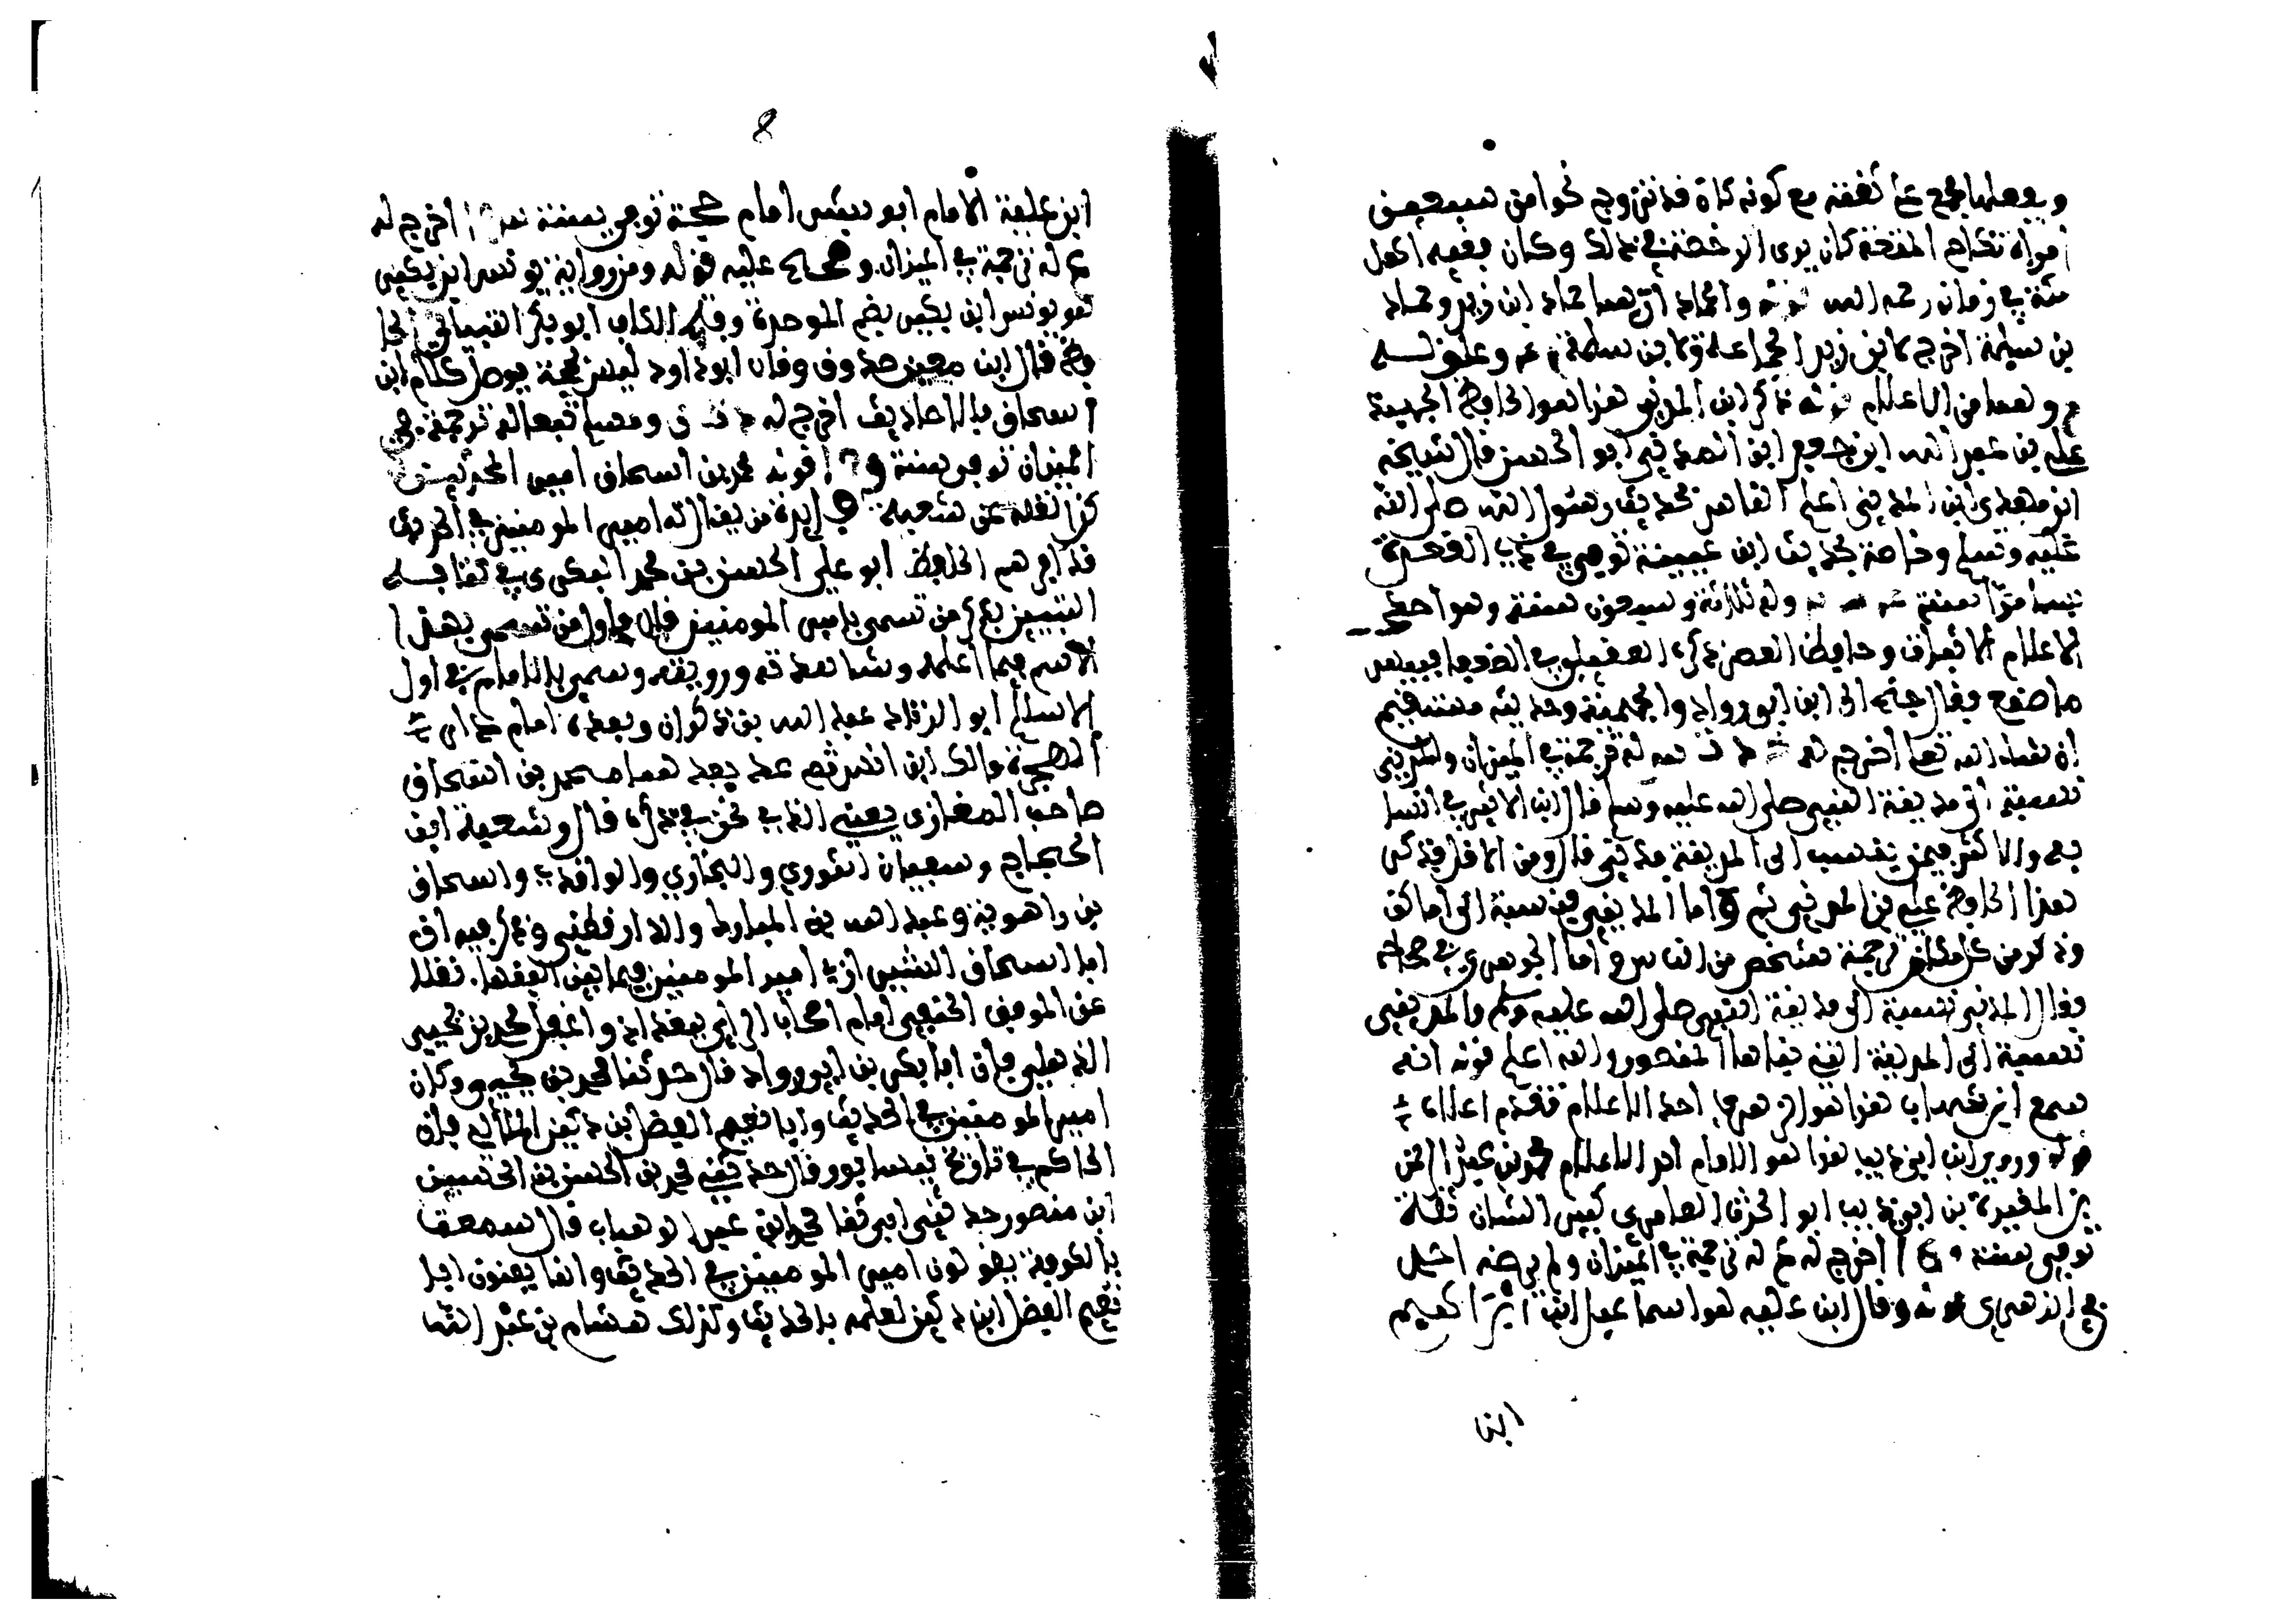 وهو مجمع على ثقته مع كونه كان قد تزوج نحوا من سبعين
امراة نكاح المتعة كان يرى الرخصة في ذلك وكان فقيه اهل
مكة في زمانه رحمه الله قوله والحماد ان هما حماد ابن زيد وحماد
بن سلمة اخرج لابن زيد الجماعة ولابن سلمة م عه وعلق له
خ وهما من الاعلام قوله ذكر ابن المديني هذا هو الحافظ الجهبذ
علي بن عبد الله ابن جعفر ابن المديني ابو الحسن قال شيخه
ابن مهدي ابن المديني اعلم الناس بحديث رسول الله صلى الله
عليه وسلم وخاصة بحديث ابن عيينة توفي في ذي القعدة
بسامرا سنة وله ثلاثة وسبعون سنة وهو احد
الاعلام الاثبات وحافظ العصر ذكره العقيلي في الضعفا فبئس
ما صنع فقال جنح الى ابن ابي دواد والجهمية وحديثه مستقيم
ان شاء الله تعالى اخرج له خ د ت س له ترجمة في الميزان والمديني
نسبة الى مدينة النبي صلى الله عليه وسلم قال ابن الاثير في انسا
به والاكثر فيمن ينسب الى المدينة مدني قال ومن الاقل فذكر
هذا الحافظ علي بن المديني ثم واما المديني فنسبة الى اماكن
وذكر من كل مكان ترجمة شخص من الناس واما الجوهري في صحاحه
فقال المدني نسبة الى مدينة النبي صلى الله عليه وسلم والمديني
نسبة الى المدينة التي بناها المنصور والله اعلم قوله انه
سمع ابن شهاب هذا هو الزهري احد الاعلام تقدم اعلاه
قوله وروى ابن ابي ذيب هذا هو الامام احد الاعلام محمد بن عبد الرحمن
بن المغيرة بن ابي ذيب ابو الحرث العامري كبير الشان ثقة
توفي سنة ١٥٩ اخرج له ع له ترجمة في الميزان ولم يرضه احمد
في الزهري قوله وقال ابن علية هو اسماعيل ابن ابراهيم
ابن
8
ابن علية الامام ابو بشر امام حجة توفي سنة اخرج له
ع له ترجمة في الميزان وصحح عليه قوله ومن رواية يونس ابن بكير
هو يونس ابن بكير بضم الموحدة وفتح الكاف ابو بكر الشيباني الحا
فظ قال ابن معين صدوق وقال ابو داود ليس بحجة يوصل كلام ابن
اسحاق بالاحاديث اخرج له خ د ت ق ومسلم تبعا له ترجمة في
الميزان توفي سنة قوله محمد بن اسحاق امير المحدثين
كذا نقله عن شعبة فايدة من يقال له امير المومنين في الحديث
قد افردهم الحافظ ابو علي الحسن بن محمد البكري في كتابه
التبيين بذكر من تسمى بامير المومنين قال واول من تسمى بهذا
الاسم فيما اعلمه وشاهدته ورويته وسمي بالامام في اول
الاسلام ابو الزناد عبد الله بن ذكوان وبعده امام دار
الهجرة مالك ابن انس ثم عد بعد هما محمد بن اسحاق
صاحب المغازي يعني الذي نحن في ذكره قال وشعبة ابن
الحجاج وسفيان الثوري والبخاري والواقدي واسحاق
بن راهويه وعبد الله بن المبارك والدارقطني وذكر فيه ان
ابا اسحاق الشيرازي امير المومنين فيما بين الفقها نقلا
عن الموفق الحنفي امام اصحاب الراي ببغداد واغفل محمد بن يحيى
الذهلي فان ابا بكر بن ابي داود قال حدثنا محمد بن يحيى وكان
امير المومنين في الحديث وابا نعيم الفضل بن دكين الملائي فان
الحاكم في تاريخ نيسابور قال حدثني محمد بن الحسن بن الحسين
ابن منصور حدثني ابي ثنا محمد ابن عبد الوهاب قال سمعت
بالكوفة يقولون امير المومنين في الحديث وانما يعنون ابا
نعيم الفضل ابن دكين لعلمه بالحديث وكذلك هشام بن عبد الله